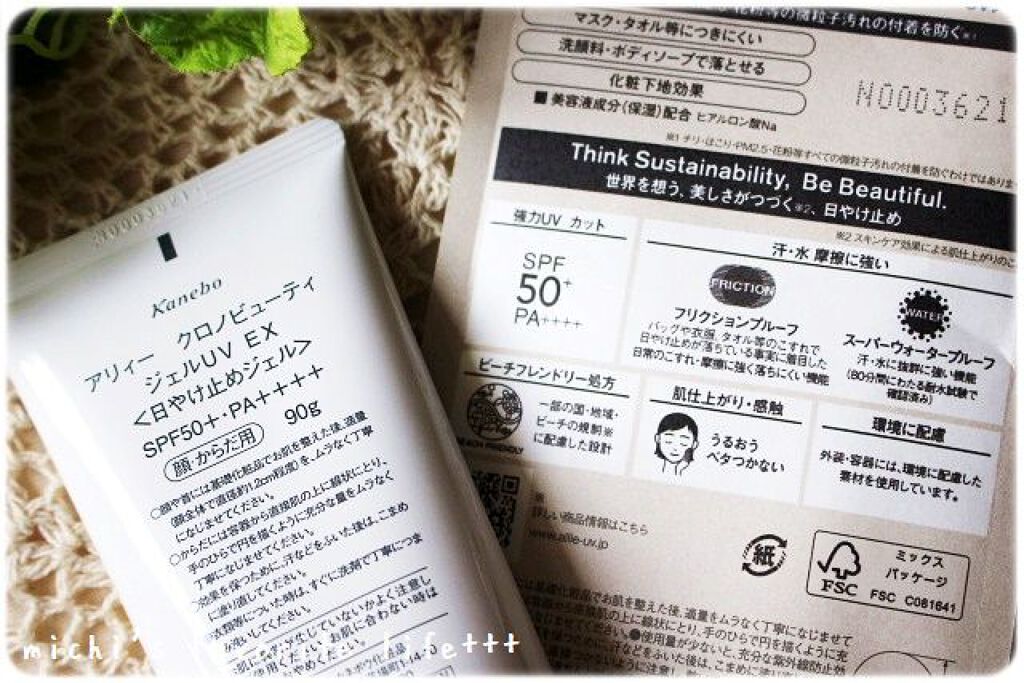 Kanebo
アリィー クロノビューティ
ジェルUV EX
<日やけ止めジェル>
SPF50+・PA++++
顔・からだ用 90g
○顔や首には基礎化粧品でお肌を整えた後、適量
(顔全体で直径約1.2cm程度)を、ムラなく丁寧
になじませてください。
○からだには容器から直接肌の上に線状にとり、
手のひらで円を描くように充分な量をムラなく
丁寧になじませてください。
○効果を保つために、汗などをふいた後は、こまめ
に塗り直してください。
衣類等についた時は、すぐに洗剤で丁寧につま
の微粒子汚れの付着を防ぐ
マスク・タオル等につきにくい
洗顔料・ボディソープで落とせる
化粧下地効果
■美容液成分(保湿)配合 ヒアルロン酸Na
N0003621
※1 チリ・ほこり・PM2.5・花粉等すべての微粒子汚れの付着を防ぐわけではありま
Think Sustainability, Be Beautiful.
世界を想う、美しさがつづく※2、日やけ止め
※2 スキンケア効果による肌仕上がりのこ
強力UV カット
SPF
50+
PA++++
汗・水 摩擦に強い
FRICTION
フリクションプルーフ
バッグや衣服、タオル等のこすれで
日やけ止めが落ちている事実に着目した
日常のこすれ・摩擦に強く落ちにくい機能
WATER
スーパーウォータープルーフ
汗・水に抜群に強い機能
(80分間にわたる耐水試験で
確認済み)
ビーチフレンドリー処方
一部の国・地域・
ビーチの規制※
に配慮した設計
肌仕上がり・感触
うるおう
ベタつかない
環境に配慮
外装・容器には、環境に配慮した
素材を使用しています。
詳しい商品情報はこちら
www.allie-uv.jp
紙
FSC
ミックス
パッケージ
FSC C081641
michi's favorite life+++